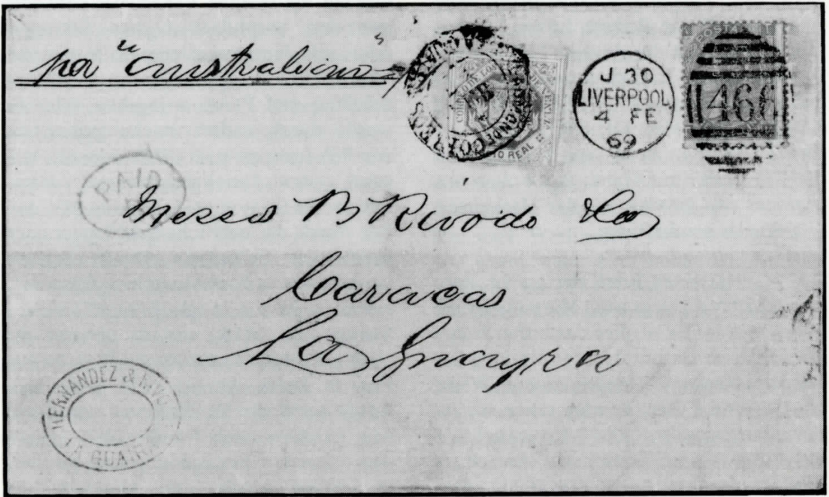 por "Australian"
J 30
LIVERPOOL
4 FE
69
466
REAL
PAID
Messrs B Rivodo & Co
Caracas
La Guayra
HERNANDEZ &
LA GUAIRA